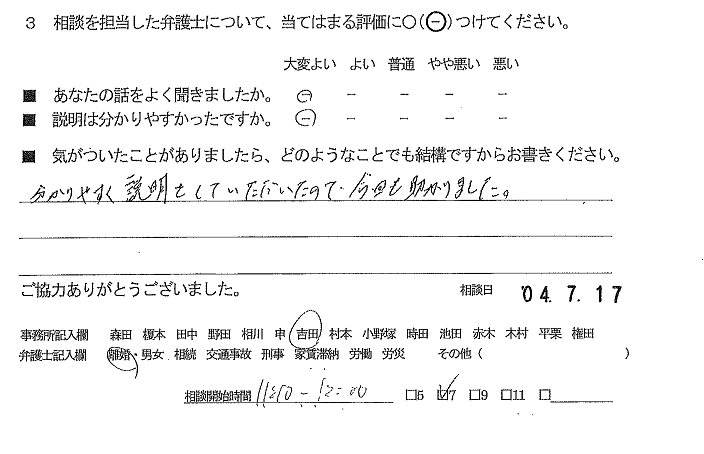 3 相談を担当した弁護士について、当てはまる評価に○(⊖)つけてください。
大変よい よい 普通 やや悪い 悪い
■ あなたの話をよく聞きましたか。 ⊖ － － － －
■ 説明は分かりやすかったですか。 ⊖ － － － －
■ 気がついたことがありましたら、どのようなことでも結構ですからお書きください。
分かりやすく説明をしていただいたので、今回も助かりました。
ご協力ありがとうございました。 相談日 '04.7.17
事務所記入欄 森田 榎本 田中 野田 相川 申 吉田 村本 小野塚 時田 池田 赤木 木村 平栗 権田
弁護士記入欄 離婚・男女 相続 交通事故 刑事 家賃滞納 労働 労災 その他（ ）
相談開始時間 11:50 - 12:00 □5 ☑7 □9 □11 □